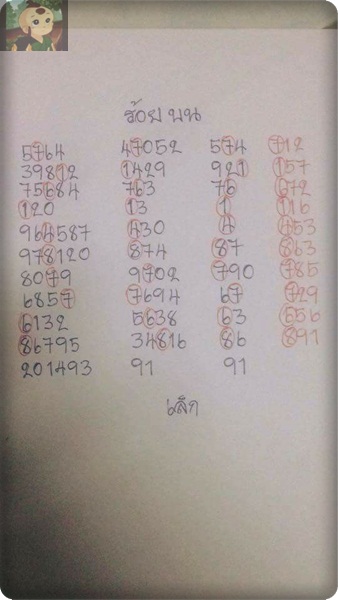 ร้อย บน
5764 47052 574 712
39812 1429 921 157
75684 763 76 672
120 13 1 116
964587 430 4 453
978120 874 87 863
8079 9702 790 785
6857 7694 67 729
6132 5638 63 656
86795 34816 86 891
201493 91 91
เลิก